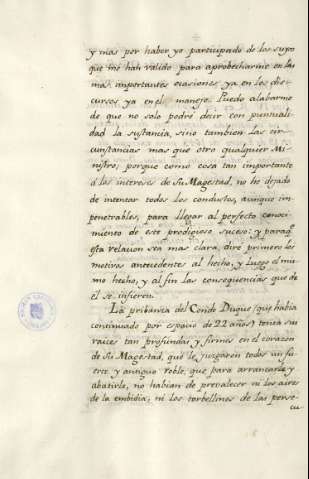 y mas por haber yo participado de los suyos
que me han valido para aprobecharme en las
mas importantes ocasiones ya en los dis-
cursos ya en el manejo. Puedo alabarme
de que no solo podré decir con puntuali-
dad la sustancia, sino tambien las cir-
cunstancias mas que otro qualquier Mi-
nistro; porque como cosa tan importante
á los intereses de Su Magestad, no he dejado
de intentar todos los conductos, aunque im-
penetrables, para llegar al perfecto conoci-
miento de este prodigioso suceso: y para q.
esta relacion sea mas clara, diré primero los
motivos antecedentes al hecho, y luego el mis-
mo hecho, y al fin las consequencias que de
el se infieren.
La pribanza del Conde Duque (que habia
continuado por espacio de 22 años) tenia sus
raices tan profundas y firmes en el corazon
de Su Magestad, que le juzgaron todos un fu-
erte y antiguo roble, que para arrancarle y
abatirle, no habian de prevalecer ni los aires
de la embidia, ni los torbellinos de las perse-
cu